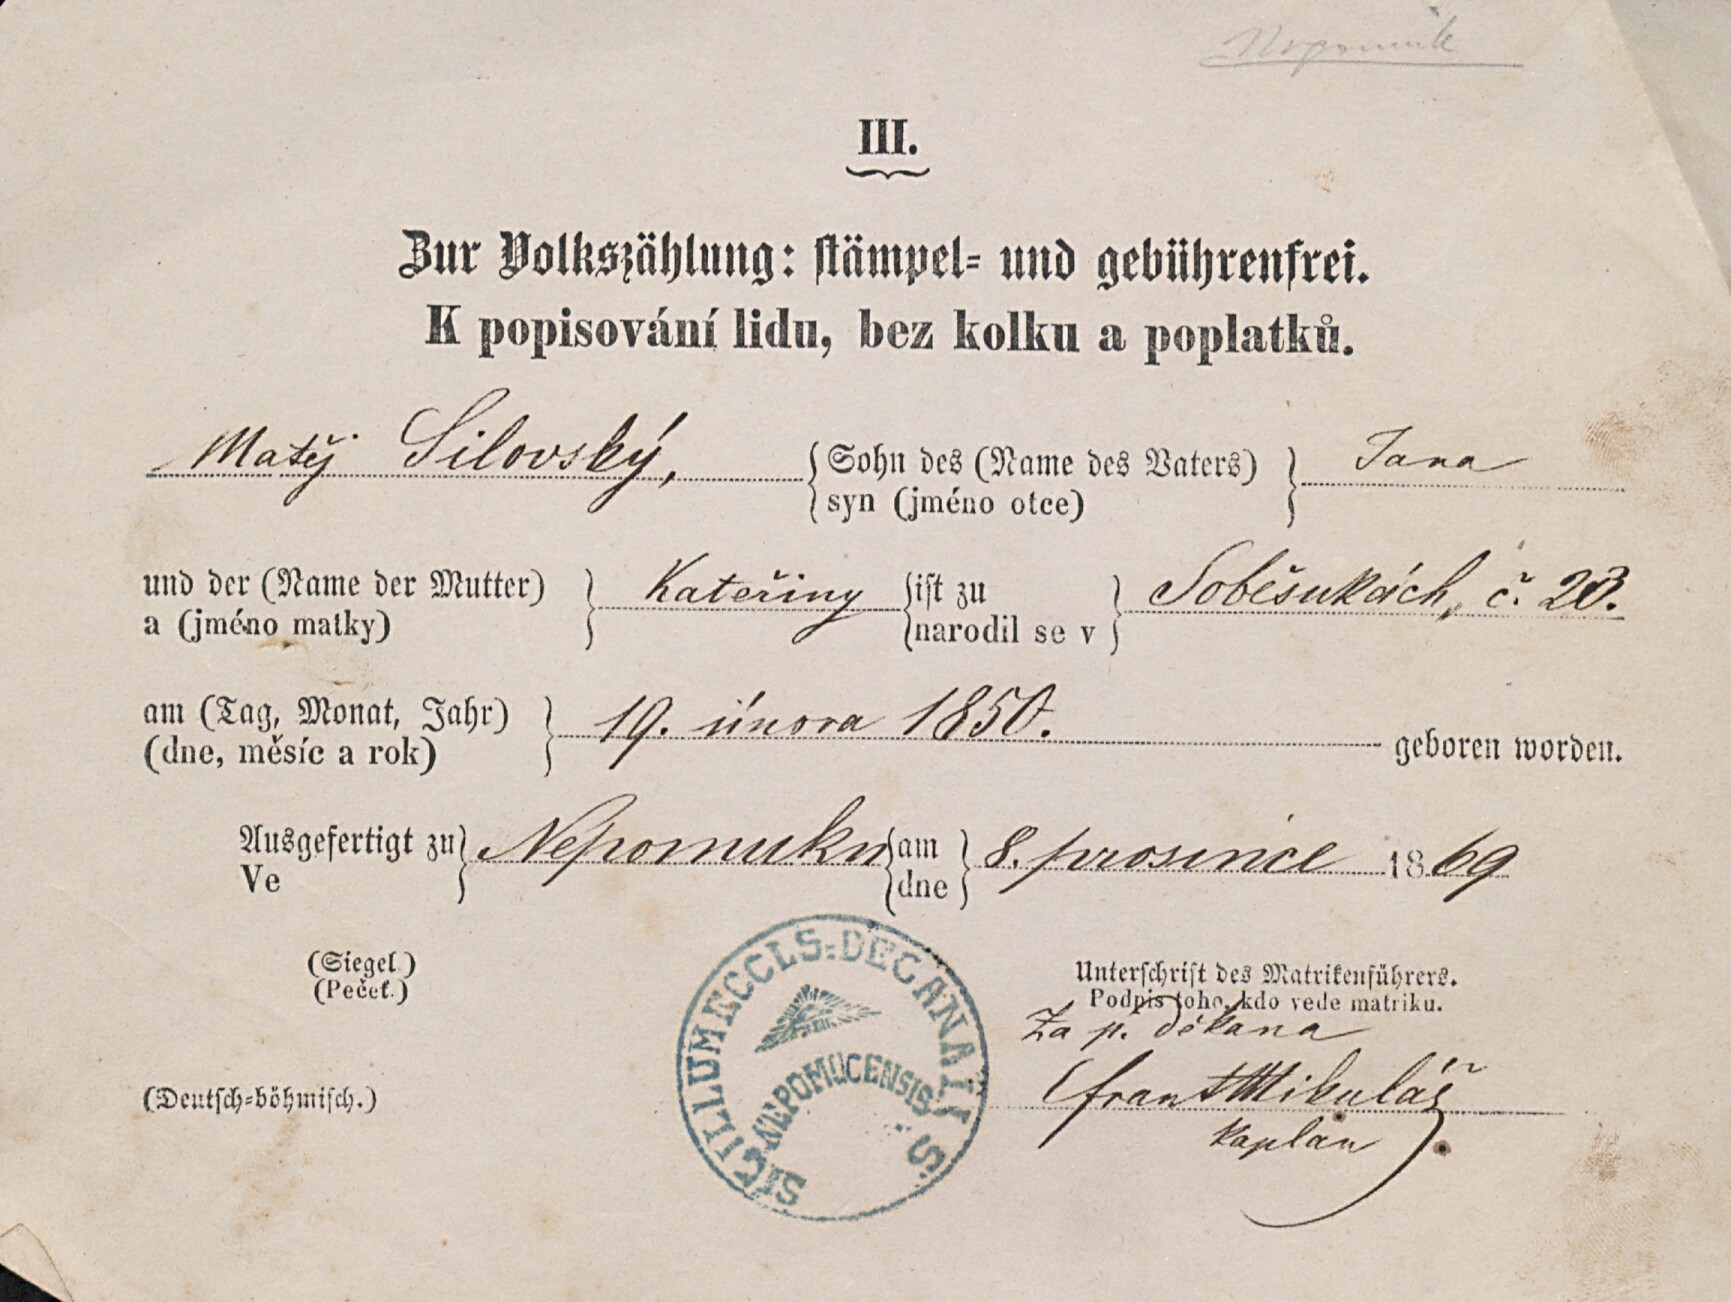 Nepomuk
III.
Zur Volkszählung: stämpel= und gebührenfrei.
K popisování lidu, bez kolku a poplatků.
Matěj Silovský, Sohn des (Name des Vaters) Jana
syn (jméno otce)
und der (Name der Mutter) Kateřiny ist zu Soběsukách, č. 23.
a (jméno matky) narodil se v
am (Tag, Monat, Jahr) 19. února 1850. geboren worden.
(dne, měsíc a rok)
Ausgefertigt zu Nepomuku am 8. prosince 1869
Ve dne
(Siegel) Unterschrift des Matrikenführers.
(Pečeť.) Podpis toho, kdo vede matriku.
Za p. děkana
(Deutsch=böhmisch.) Frant Mikuláš
kaplan
SIGILLUM ECCLS: DECANALIS
NEPOMUCENSIS